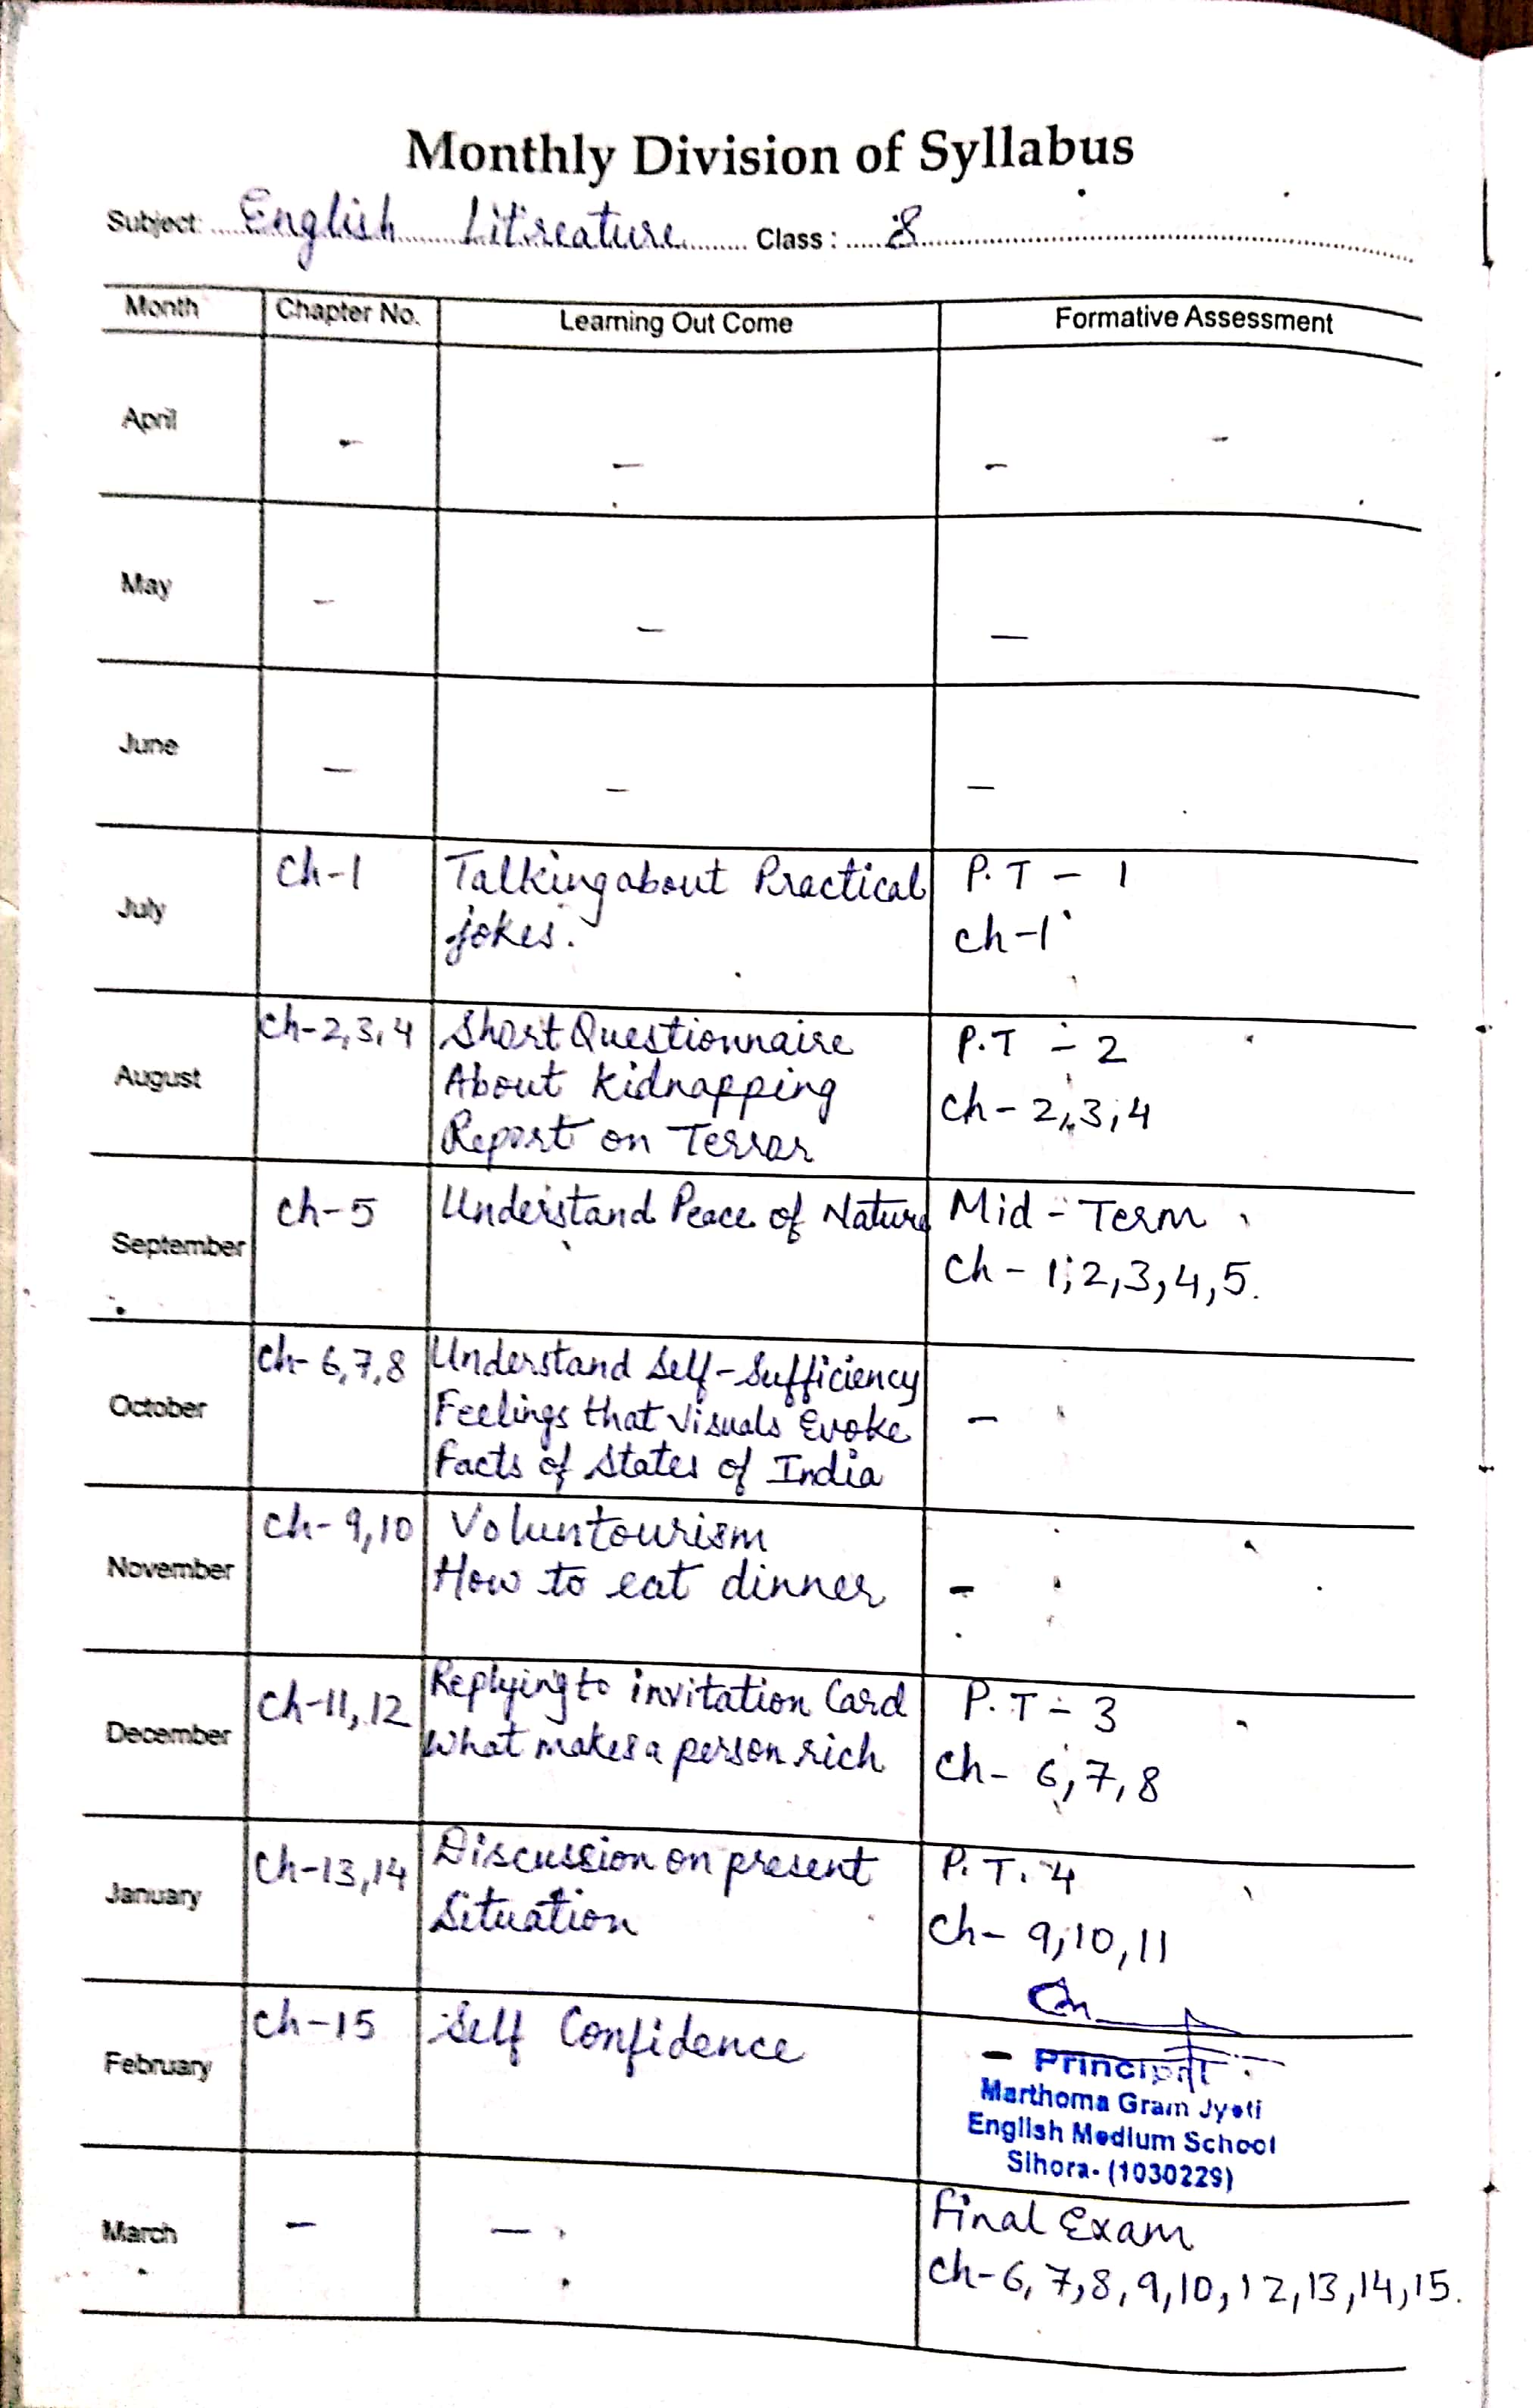 Monthly Division of Syllabus
Subject: English Litreature Class : 8
Month Chapter No. Learning Out Come Formative Assessment
April - - - -
May - - -
June - - -
July ch-1 Talking about Practical P.T - 1
jokes. ch-1
August ch-2,3,4 Short Questionnaire P.T - 2
About kidnapping ch- 2,3,4
Report on Terror
September ch-5 Understand Peace of Nature Mid - Term
ch - 1,2,3,4,5.
October ch- 6,7,8 Understand Self-Sufficiency -
Feelings that visuals Evoke
Facts of States of India
November ch- 9,10 Voluntourism -
How to eat dinner
December ch-11,12 Replying to invitation Card P.T - 3
What makes a person rich ch- 6,7,8
January ch-13,14 Discussion on present P.T. 4
Situation ch- 9,10,11
February ch-15 Self Confidence -
Principal
Marthoma Gram Jyoti
English Medium School
Sihora- (1030229)
March - - Final Exam
ch-6,7,8,9,10,12,13,14,15.